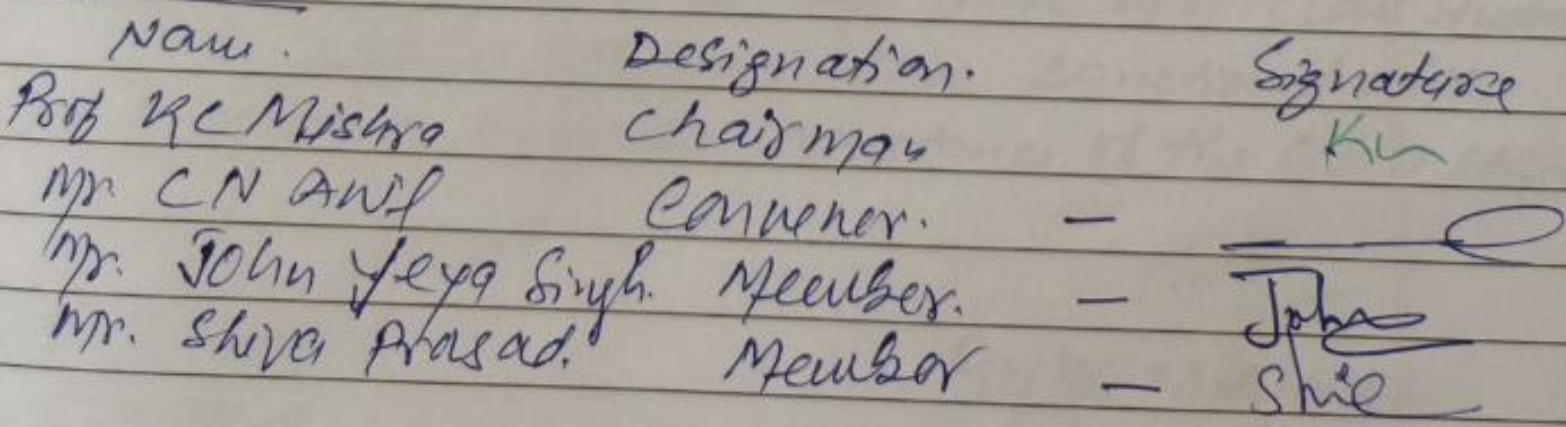 Name. Designation. Signature
Prof KC Mishra Chairman
Mr. CN Anil Convener. -
Mr. John Jeya Singh. Member. - John
Mr. Shiva Prasad. Member -